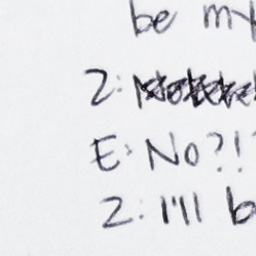 be my
Z:
E: No?!?
Z: I'll b